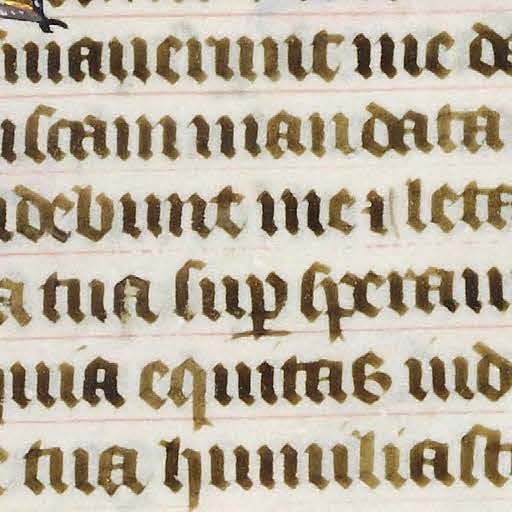 smauerunt me de
iscam mandata
idebunt me ⁊ lete
a tua sup sperau
quia equitas iud
tua humiliast